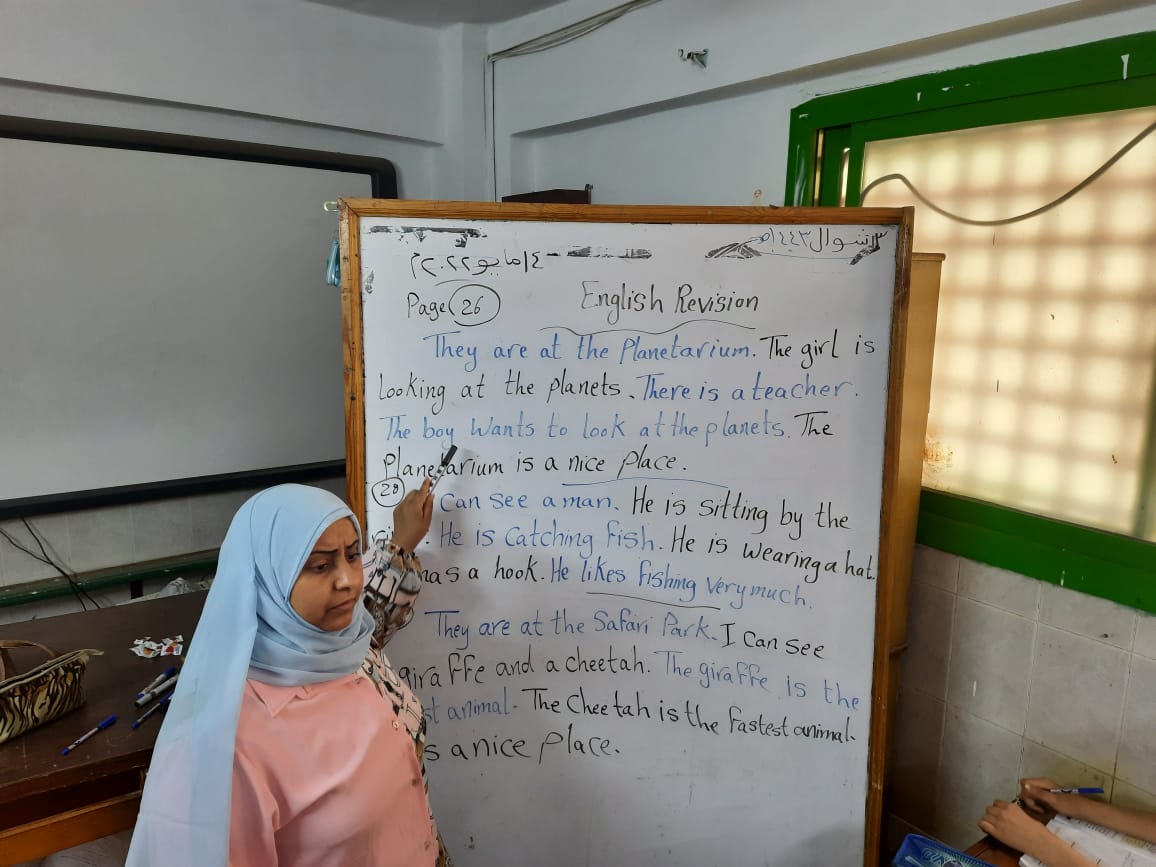 ١٣ شوال ١٤٤٣ هـ
١٤ مايو ٢٠٢٢ م
Page 26 English Revision
They are at the Planetarium. The girl is
looking at the planets. There is a teacher.
The boy wants to look at the planets. The
Planetarium is a nice place.
28 can see a man. He is sitting by the
He is catching fish. He is wearing a hat.
has a hook. He likes fishing very much.
They are at the Safari Park. I can see
giraffe and a cheetah. The giraffe is the
st animal. The Cheetah is the fastest animal.
s a nice place.